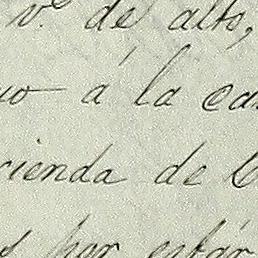 v.º de alto,
á la ca
cienda de C
por estár